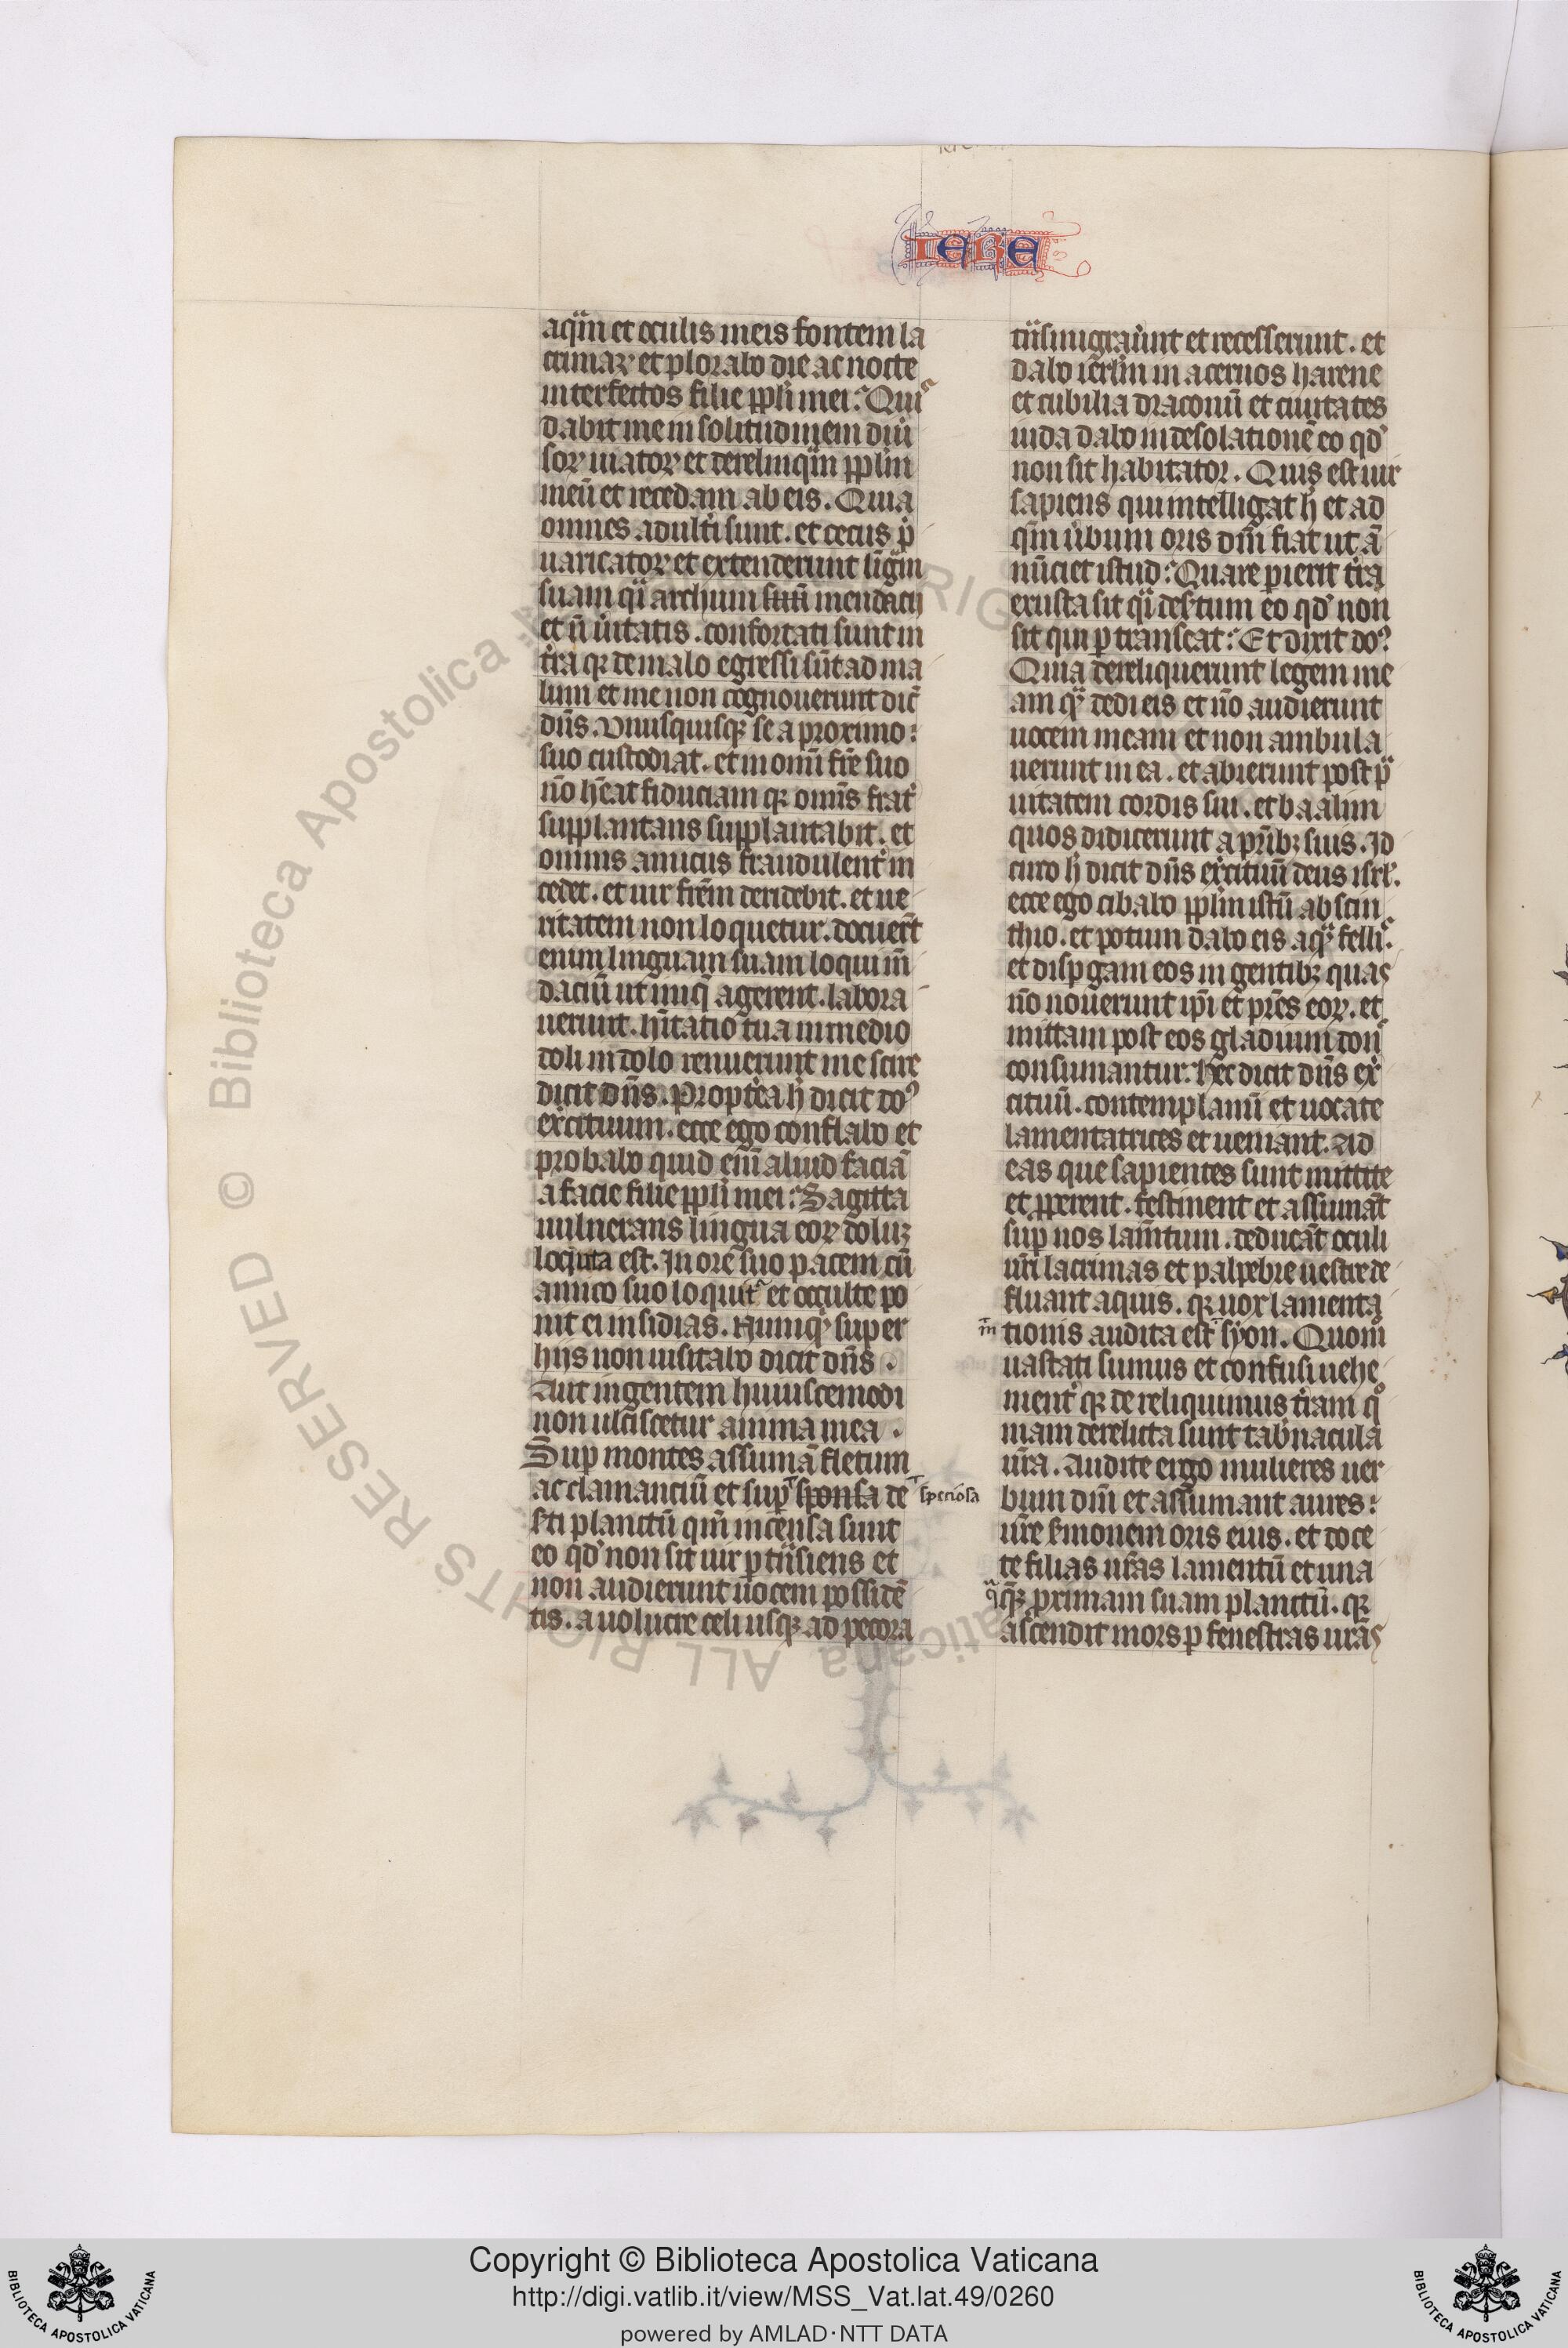 IERE
aqͣm et oculis meis fontem la
crimaꝝ et plorabo die ac nocte
interfectos filie ppl̓i mei. Quis
dabit me in solitudinem diu̓
soꝝ uiatoꝝ et derelinqͣm ppl̓m
meū et recedam ab eis. Quia
omnes adult̓i sunt. et cetus p̓
uaricatoꝝ et extenderunt lig̃uͣm
suam qͣi archum mendacij
et n̄ u̓itatis. confortati sunt in
t̓ra qꝛ de malo egressi sūt ad ma
lum et me non cognouerunt dic̄
dn̄s. Vnusquisqꝫ se a proximo
suo custodiat. et in omī fr̄e suo
nō hēat fiduciam qꝛ omīs frat̓
supplantans supplantabit. et
omnis amicus fraudulent̓ in
cedet. et uir fr̄em deridebit. et ue
ritatem non loquetur. docuer̄t
enim linguam suam loqui m̄
daciū ut iniq̄ agerent. labora
uerunt. hītatio tua in medio
doli in dolo renuerunt me scire
dicit dn̄s. Propt̓ea h̓ dicit doꝰ
ex̓cituum. ecce ego conflabo et
probabo quid eni̅ aliud faciā
a facie filie ppl̓i mei. Sagitta
uulnerans lingua eoꝝ doluꝫ
locuta est. In ore suo pacem cū
amico suo loquit᷑ et occulte po
nit ei insidias. Numqͥd super
hijs non uisitabo dicit dn̄s.
Aut in gentem huiuscemodi
non ulciscetur anima mea.
Suꝑ montes assumā fletum
ac clamanciū et suꝑ sponsa de
speciosa
s̓ti planctū qm̄ incensa sunt
eo qd̓ non sit uir ꝑtͣnsiens et
non audierunt uocem possidē
tis. a volucre celi usqꝫ ad pecora
tͣnsmigrau̓unt et recesserunt. et
dabo ierl̓m in aceruos harene
et cubilia draconū et ciuitates
iuda dabo in desolationē eo qd̓
non sit habitator. Quis est uir
sapiens qui intelligat h̓ et ad
quē u̓bum oris dn̄i fiat ut ā
nūciet istud. Quare ꝑierit t̓ra
exusta sit qͣi des̓tum eo qd̓ non
sit qui ꝑtranseat. Et dixit doꝰ
Quia dereliquerunt legem me
am qͣ dedi eis et nō audierunt
uocem meam et non ambula
uerunt in ea. et abierunt post pͣ
uitatem cordis sui. et baalim
quos didicerunt a pr̄ibꝫ suis. Id
circo h̓ dicit dn̄s ex̓cituū deus isrl̓.
ecce ego cibabo ppl̓m istū abscin
thio. et potum dabo eis aqͣ fellis.
et disꝑgam eos in gentibꝫ quas
nō nouerunt ip̄i et pr̄es eoꝝ. et
mittam post eos gladium don̓
consumantur. Hec dicit dn̄s ex̓
cituū. contemplamī et uocate
lamentatrices et ueniant. Ad
eas que sapientes sunt mittite
et ꝓperent. festinent et assumāt
suꝑ nos lam̄tum. deducāt oculi
nr̄i lacrimas et palpebre nestre de
fluant aquis. qꝛ uox lamenta
tionis audita est syon. Quom̊
in
uastati sumus et confusi uehe
ment̓ qꝛ dereliquimus t̓ram qͦ
niam derelicta sunt tab̓nacula
nr̄a. Audite ergo mulieres uer
bum dn̄i et assumant aures
ur̄e s̓monem oris eius. et doce
te filias ur̄as lamentū et una
qͣ
qꝫ proximam suam planctū. qꝛ
ascendit mors ꝑ fenestras nr̄as
Copyright © Biblioteca Apostolica Vaticana
http://digi.vatlib.it/view/MSS_Vat.lat.49/0260
powered by AMLAD·NTT DATA
BIBLIOTECA APOSTOLICA VATICANA
BIBLIOTECA APOSTOLICA VATICANA
© Biblioteca Apostolica Vaticana ALL RIGHTS RESERVED